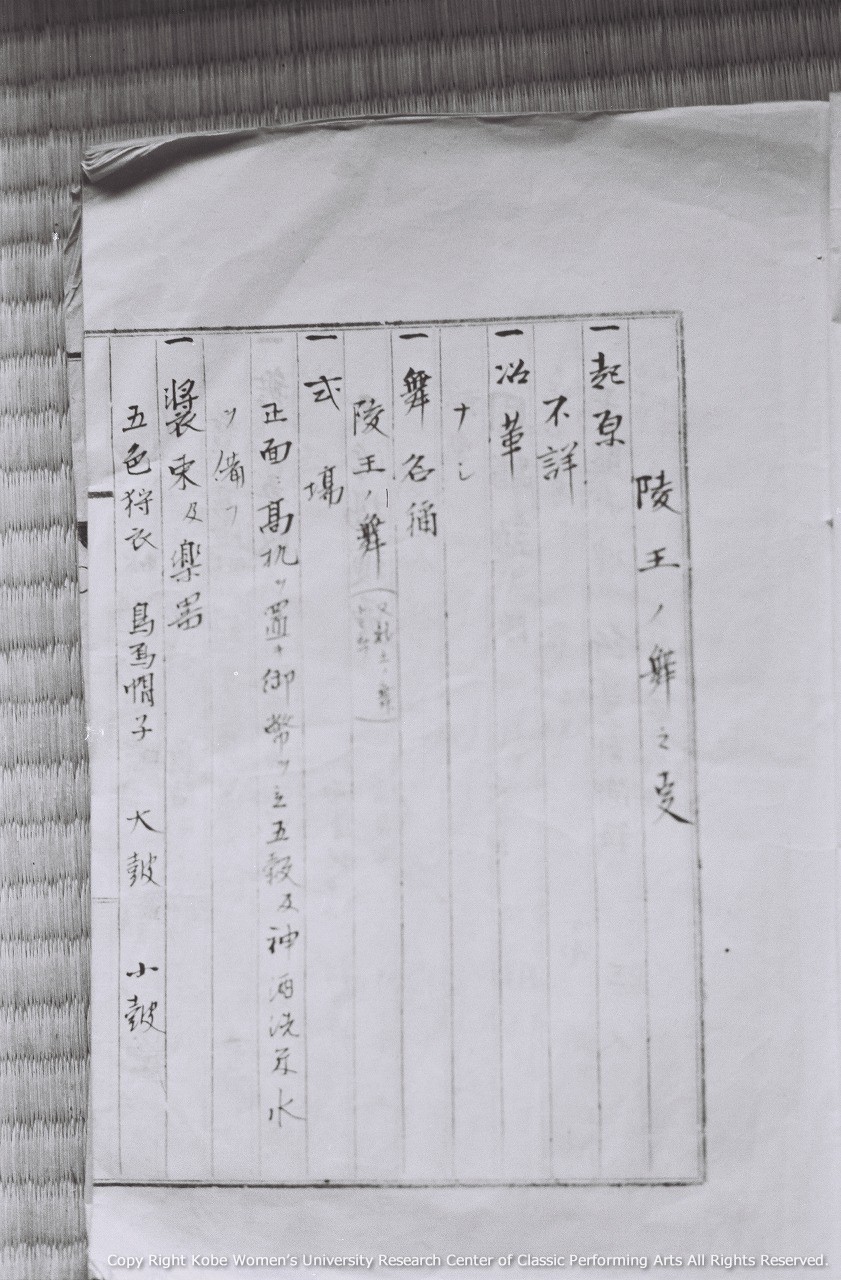 陵王ノ舞之叓
一起原
不詳
一沿革
ナシ
一舞名称
陵王ノ舞(又龍王ノ舞
一式場
正面ニ高机ヲ置キ御幣ヲ立五穀及神酒洗米水
ヲ備フ
一装束及楽器
五色狩衣 鳥烏帽子 大皷 小皷
Copy Right Kobe Women's University Research Center of Classic Performing Arts All Rights Reserved.